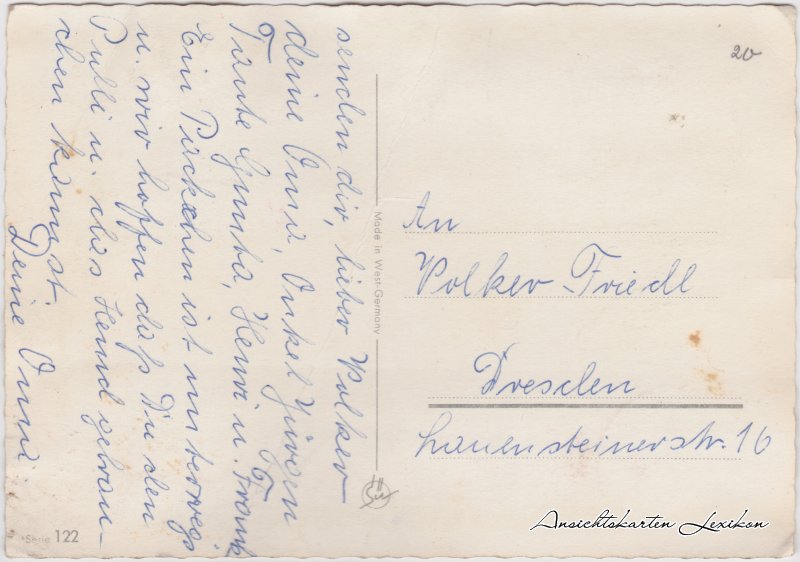 senden dir, lieber Volker
deine Oma, Onkel Jürgen
Tante Gunta, Henri u. Frank
Ein Päckchen ist unterwegs
u. wir hoffen daß Du den
Pulli u. das Hemd gebrau-
chen kannst.
Deine Oma.
Made in West-Germany
20
An
Volker Friedl
Dresden
Lauensteinerstr. 16
Serie 122
Ansichtskarten Lexikon